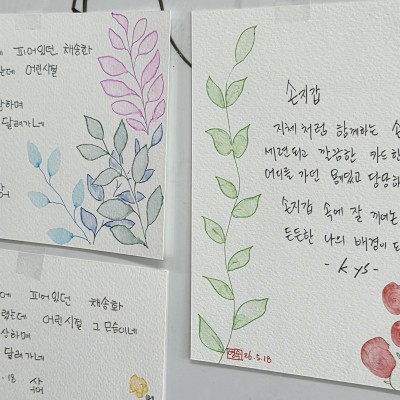 피어있던 채송화
어린시절
달려가네
손지갑
지체처럼 함께하는 손
세련되고 깔끔한 카드한
어디를 가던 멋있고 당당하
손지갑 속에 잘 끼여는
든든한 나의 배경이 되
- kys -
26.5.18
피어있던 채송화
어린시절 그 모습이네
상하며
달려가네